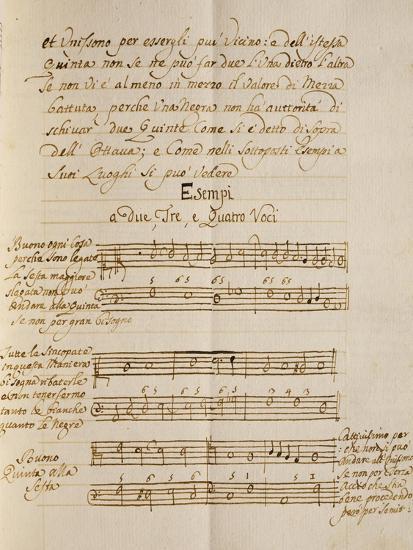 et Unissono per essergli più Vicino: e dell'istessa
Quinta non se ne può far due l'Una dietro l'altra
Se non Vi é al meno in mezzo il Valore di Mezza
battuta, perche Una Negra non ha auttorità di
schivar due Quinte Come Si e detto di Sopra
dell' Ottava; e Come nelli Sottoposti Esempi a
Suoi Luoghi Si può Vedere
Esempi
a due, Tre, e Quatro Voci
Buono ogni Cosa
perche sono legate
La Sesta maggiore
Slegata non può
andare alla Quinta
Se non per gran bisogno
5 6 5 6 5 65 65
Tutte le Sincopate
in questa Maniera
bisogna ribaterle
al men tener fermo
tanto le bianche
quanto le Negre
6 5 6 5 6 5 6 5
Buono
Quinta alla
Sesta
5 6 5 6 5 5 1
Cattiuissimo per
che non si può
andare all' Unissono
Se non per terza
procedendo